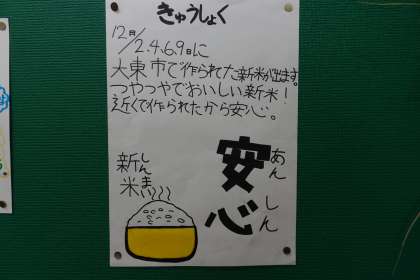 きゅうしょく
12日/2.4.6.9日に
大東市で作られてた新米が出ます。
つやつやでおいしい新米!
近くで作られたから安心。
安心
あんしん
新米
しんまい